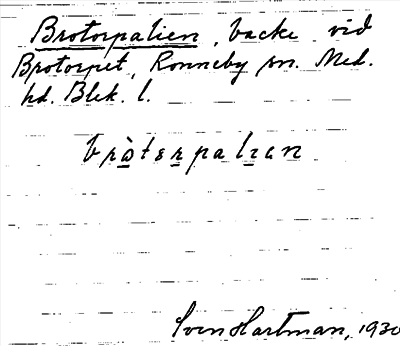 Brotorpalien, backe vid
Brotorpet, Ronneby sn. Med.
hd. Blek. l.
bròterpalıen
Sven Hartman, 1930